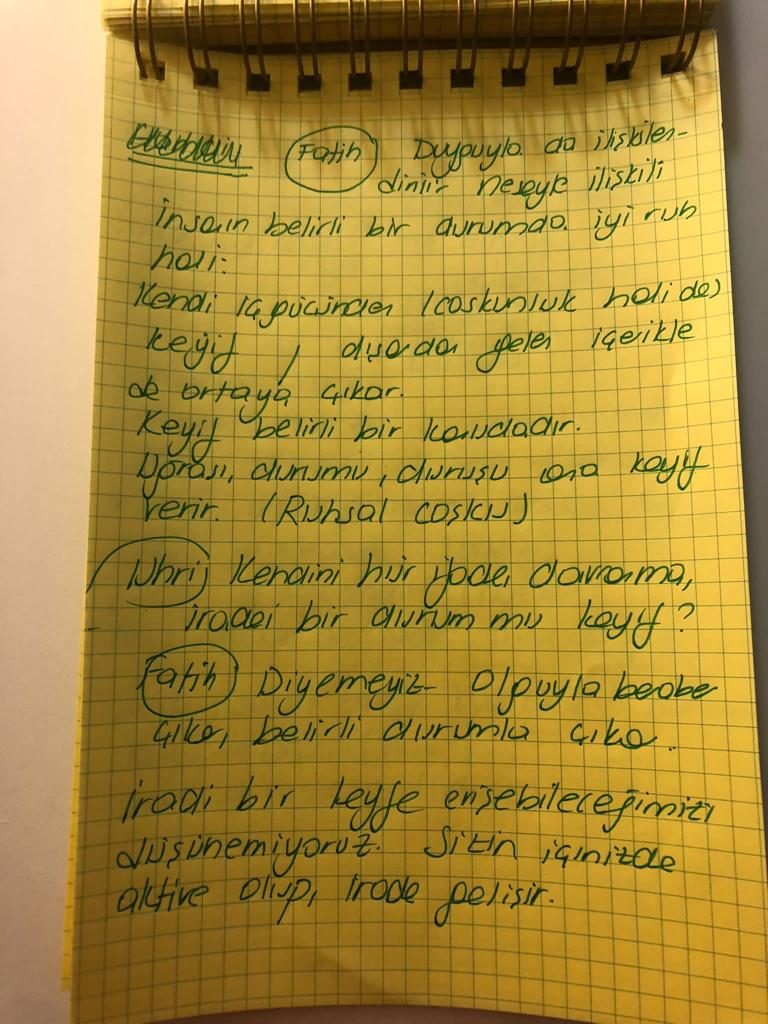 Fatih Duyguyla da ilişkilen-
dirilir neşeyle ilişkili
insanın belirli bir durumda iyi ruh
hali:
Kendi içgücünden (coşkunluk hali de)
keyif, dışardan gelen içerikle
de ortaya çıkar.
Keyif belirli bir konudadır.
durumu, duruşu ona keyif
verir. (Ruhsal coşku)
Kendini hür ifade, davranma,
iradei bir durum mu keyif?
Fatih Diyemeyiz. Olguyla beraber
çıkar, belirli durumla çıkar.
iradi bir keyfe erişebileceğimizi
düşünemiyoruz. Sizin içinizde
aktive olup, irade gelişir.